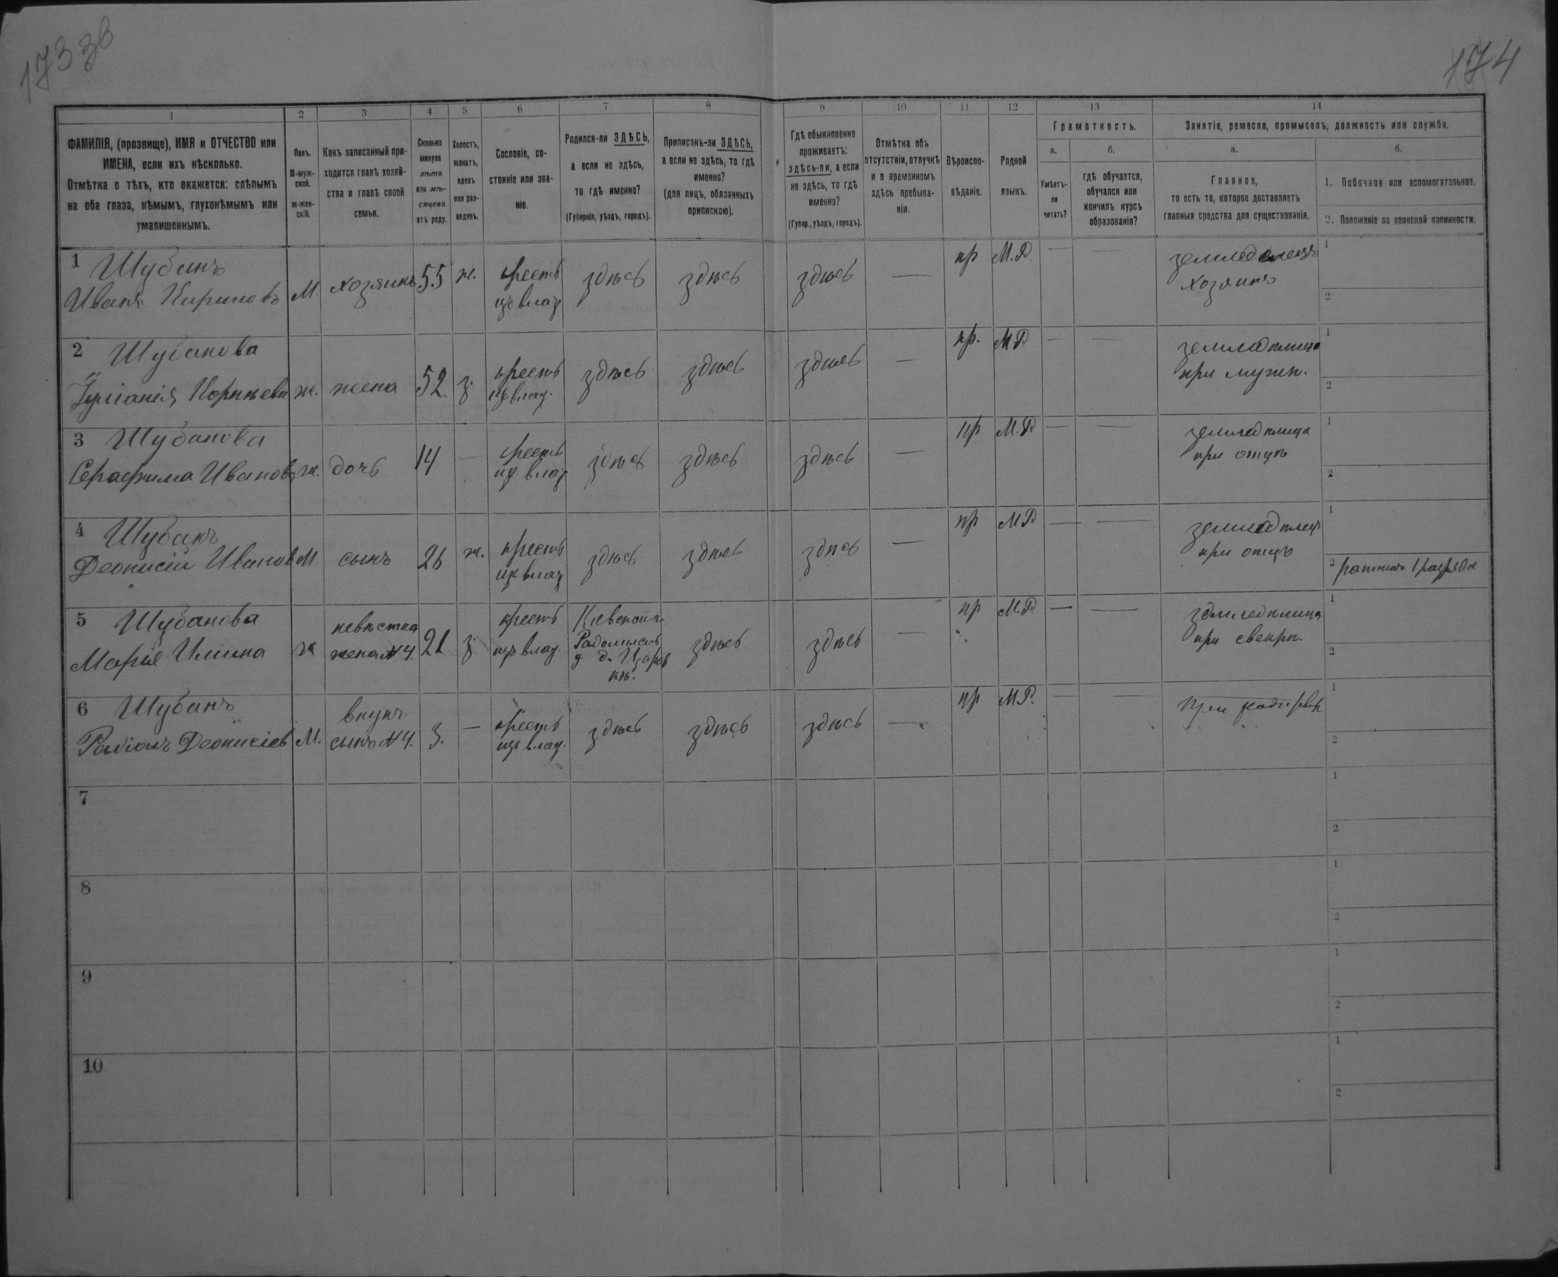 173 зв
174
1
2
3
4
5
6
7
8
9
10
11
12
13
14
ФАМИЛІЯ, (прозвище), ИМЯ и ОТЧЕСТВО или
ИМЕНА, если ихъ нѣсколько.
Отмѣтка о тѣхъ, кто окажется: слѣпымъ
на оба глаза, нѣмымъ, глухонѣмымъ или
умалишеннымъ.
Полъ.
М-муж-
ской.
ж-жен-
скій.
Какъ записанный при-
ходится главѣ хозяй-
ства и главѣ своей
семьи.
Сколько
минуло
лѣтъ
или мѣ-
сяцевъ
отъ роду.
Холостъ,
женатъ,
вдовъ
или раз-
веденъ.
Сословіе, со-
стояніе или зва-
ніе.
Родился-ли ЗДѢСЬ,
а если не здѣсь,
то гдѣ именно?
(Губернія, уѣздъ, городъ).
Приписанъ-ли ЗДѢСЬ,
а если не здѣсь, то гдѣ
именно?
(для лицъ, обязанныхъ
припискою).
Гдѣ обыкновенно
проживаетъ:
здѣсь-ли, а если
не здѣсь, то гдѣ
именно?
(Губер., уѣздъ, городъ).
Отмѣтка объ
отсутствіи, отлучкѣ
и о временномъ
здѣсь пребыва-
ніи.
Вѣроиспо-
вѣданіе.
Родной
языкъ.
Грамотность.
а.
Умѣетъ-
ли
читать?
б.
гдѣ обучается,
обучался или
кончилъ курсъ
образованія?
Занятіе, ремесло, промыселъ, должность или служба.
а.
Главное,
то есть то, которое доставляетъ
главныя средства для существованія.
б.
1. Побочное или вспомогательное.
2. Положеніе по воинской повинности.
1 Шубанъ
Иванъ Кириловъ М хозяинъ 55 ж. крестъ
изъ влад здѣсь здѣсь здѣсь — пр М.Р. — — земледѣлецъ
хозяинъ 1
2
2 Шубанова
Корнѣева ж. жена 52 з. крестъ
из влад. здѣсь здѣсь здѣсь — пр. М.Р. — — земледѣлица
при мужѣ. 1
2
3 Шубанова
Серафима Иванова ж. дочь 14 — крестъ
из влад здѣсь здѣсь здѣсь — пр М.Р. — — земледѣлица
при отцѣ 1
2
4 Шубанъ
Деонисій Иванов М сынъ 26 ж. крестъ
из влад здѣсь здѣсь здѣсь — пр М.Р. — — земледѣлец
при отцѣ 1
2 ратникъ 1 разряда
5 Шубанова
Марія Ильина ж невѣстка
жена №4. 21 з. крестъ
изъ влад. Кіевской г
Радомысль
у д.
здѣсь здѣсь — пр М.Р. — — земледѣлица
при свекрѣ. 1
2
6 Шубанъ
Родіонъ Деонисіев М. внукъ
сынъ №4. 3. — крестъ
изъ влад. здѣсь здѣсь здѣсь — пр М.Р. — — при
1
2
7
1
2
8
1
2
9
1
2
10
1
2